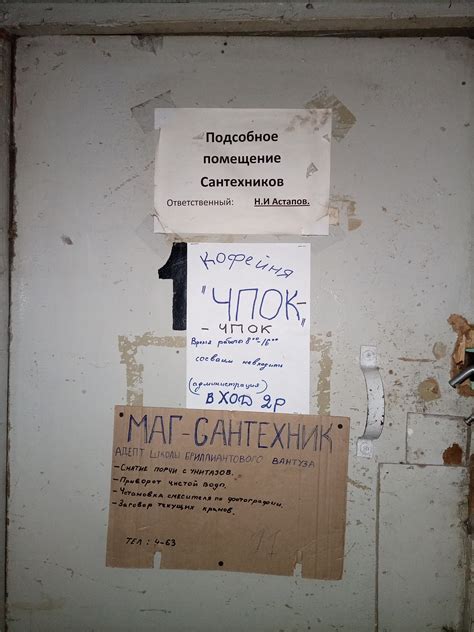 Подсобное
помещение
Сантехников
Ответственный: Н.И Астапов.
1
кофейня
"ЧПОК-"
- ЧПОК
Время работы 8⁰⁰-16⁰⁰
со своим не входить
(администрация)
ВХОД 2Р
МАГ-САНТЕХНИК
АДЕПТ ШКОЛЫ БРИЛЛИАНТОВОГО ВАНТУЗА
- Снятие порчи с унитазов.
- Приворот чистой воды.
- Установка смесителя по фотографии.
- Заговор текущих кранов.
ТЕЛ : 4-63